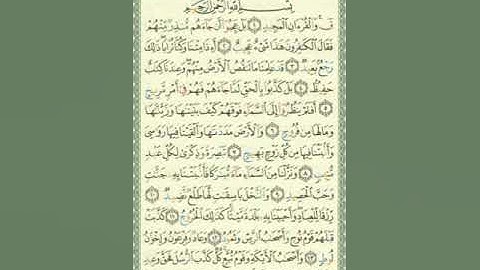 بِسْمِ اللَّهِ الرَّحْمَٰنِ الرَّحِيمِ
قٓ ۚ وَالْقُرْءَانِ الْمَجِيدِ ١ بَلْ عَجِبُوٓا أَن جَآءَهُم مُّنذِرٌ مِّنْهُمْ
فَقَالَ الْكَٰفِرُونَ هَٰذَا شَىْءٌ عَجِيبٌ ٢ أَءِذَا مِتْنَا وَكُنَّا تُرَابًا ۖ ذَٰلِكَ
رَجْعٌۢ بَعِيدٌ ٣ قَدْ عَلِمْنَا مَا تَنقُصُ الْأَرْضُ مِنْهُمْ ۖ وَعِندَنَا كِتَٰبٌ
حَفِيظٌۢ ٤ بَلْ كَذَّبُوا بِالْحَقِّ لَمَّا جَآءَهُمْ فَهُمْ فِىٓ أَمْرٍ مَّرِيجٍ
٥ أَفَلَمْ يَنظُرُوٓا إِلَى السَّمَآءِ فَوْقَهُمْ كَيْفَ بَنَيْنَٰهَا وَزَيَّنَّٰهَا
وَمَا لَهَا مِن فُرُوجٍ ٦ وَالْأَرْضَ مَدَدْنَٰهَا وَأَلْقَيْنَا فِيهَا رَوَٰسِىَ
وَأَنۢبَتْنَا فِيهَا مِن كُلِّ زَوْجٍۭ بَهِيجٍ ٧ تَبْصِرَةً وَذِكْرَىٰ لِكُلِّ عَبْدٍ
مُّنِيبٍ ٨ وَنَزَّلْنَا مِنَ السَّمَآءِ مَآءً مُّبَٰرَكًا فَأَنۢبَتْنَا بِهِۦ جَنَّٰتٍ
وَحَبَّ الْحَصِيدِ ٩ وَالنَّخْلَ بَاسِقَٰتٍ لَّهَا طَلْعٌ نَّضِيدٌ ١٠
رِّزْقًا لِّلْعِبَادِ ۖ وَأَحْيَيْنَا بِهِۦ بَلْدَةً مَّيْتًا ۚ كَذَٰلِكَ الْخُرُوجُ ١١ كَذَّبَتْ
قَبْلَهُمْ قَوْمُ نُوحٍ وَأَصْحَٰبُ الرَّسِّ وَثَمُودُ ١٢ وَعَادٌ وَفِرْعَوْنُ وَإِخْوَٰنُ
لُوطٍ ١٣ وَأَصْحَٰبُ الْأَيْكَةِ وَقَوْمُ تُبَّعٍ ۚ كُلٌّ كَذَّبَ الرُّسُلَ فَحَقَّ وَعِيدِ